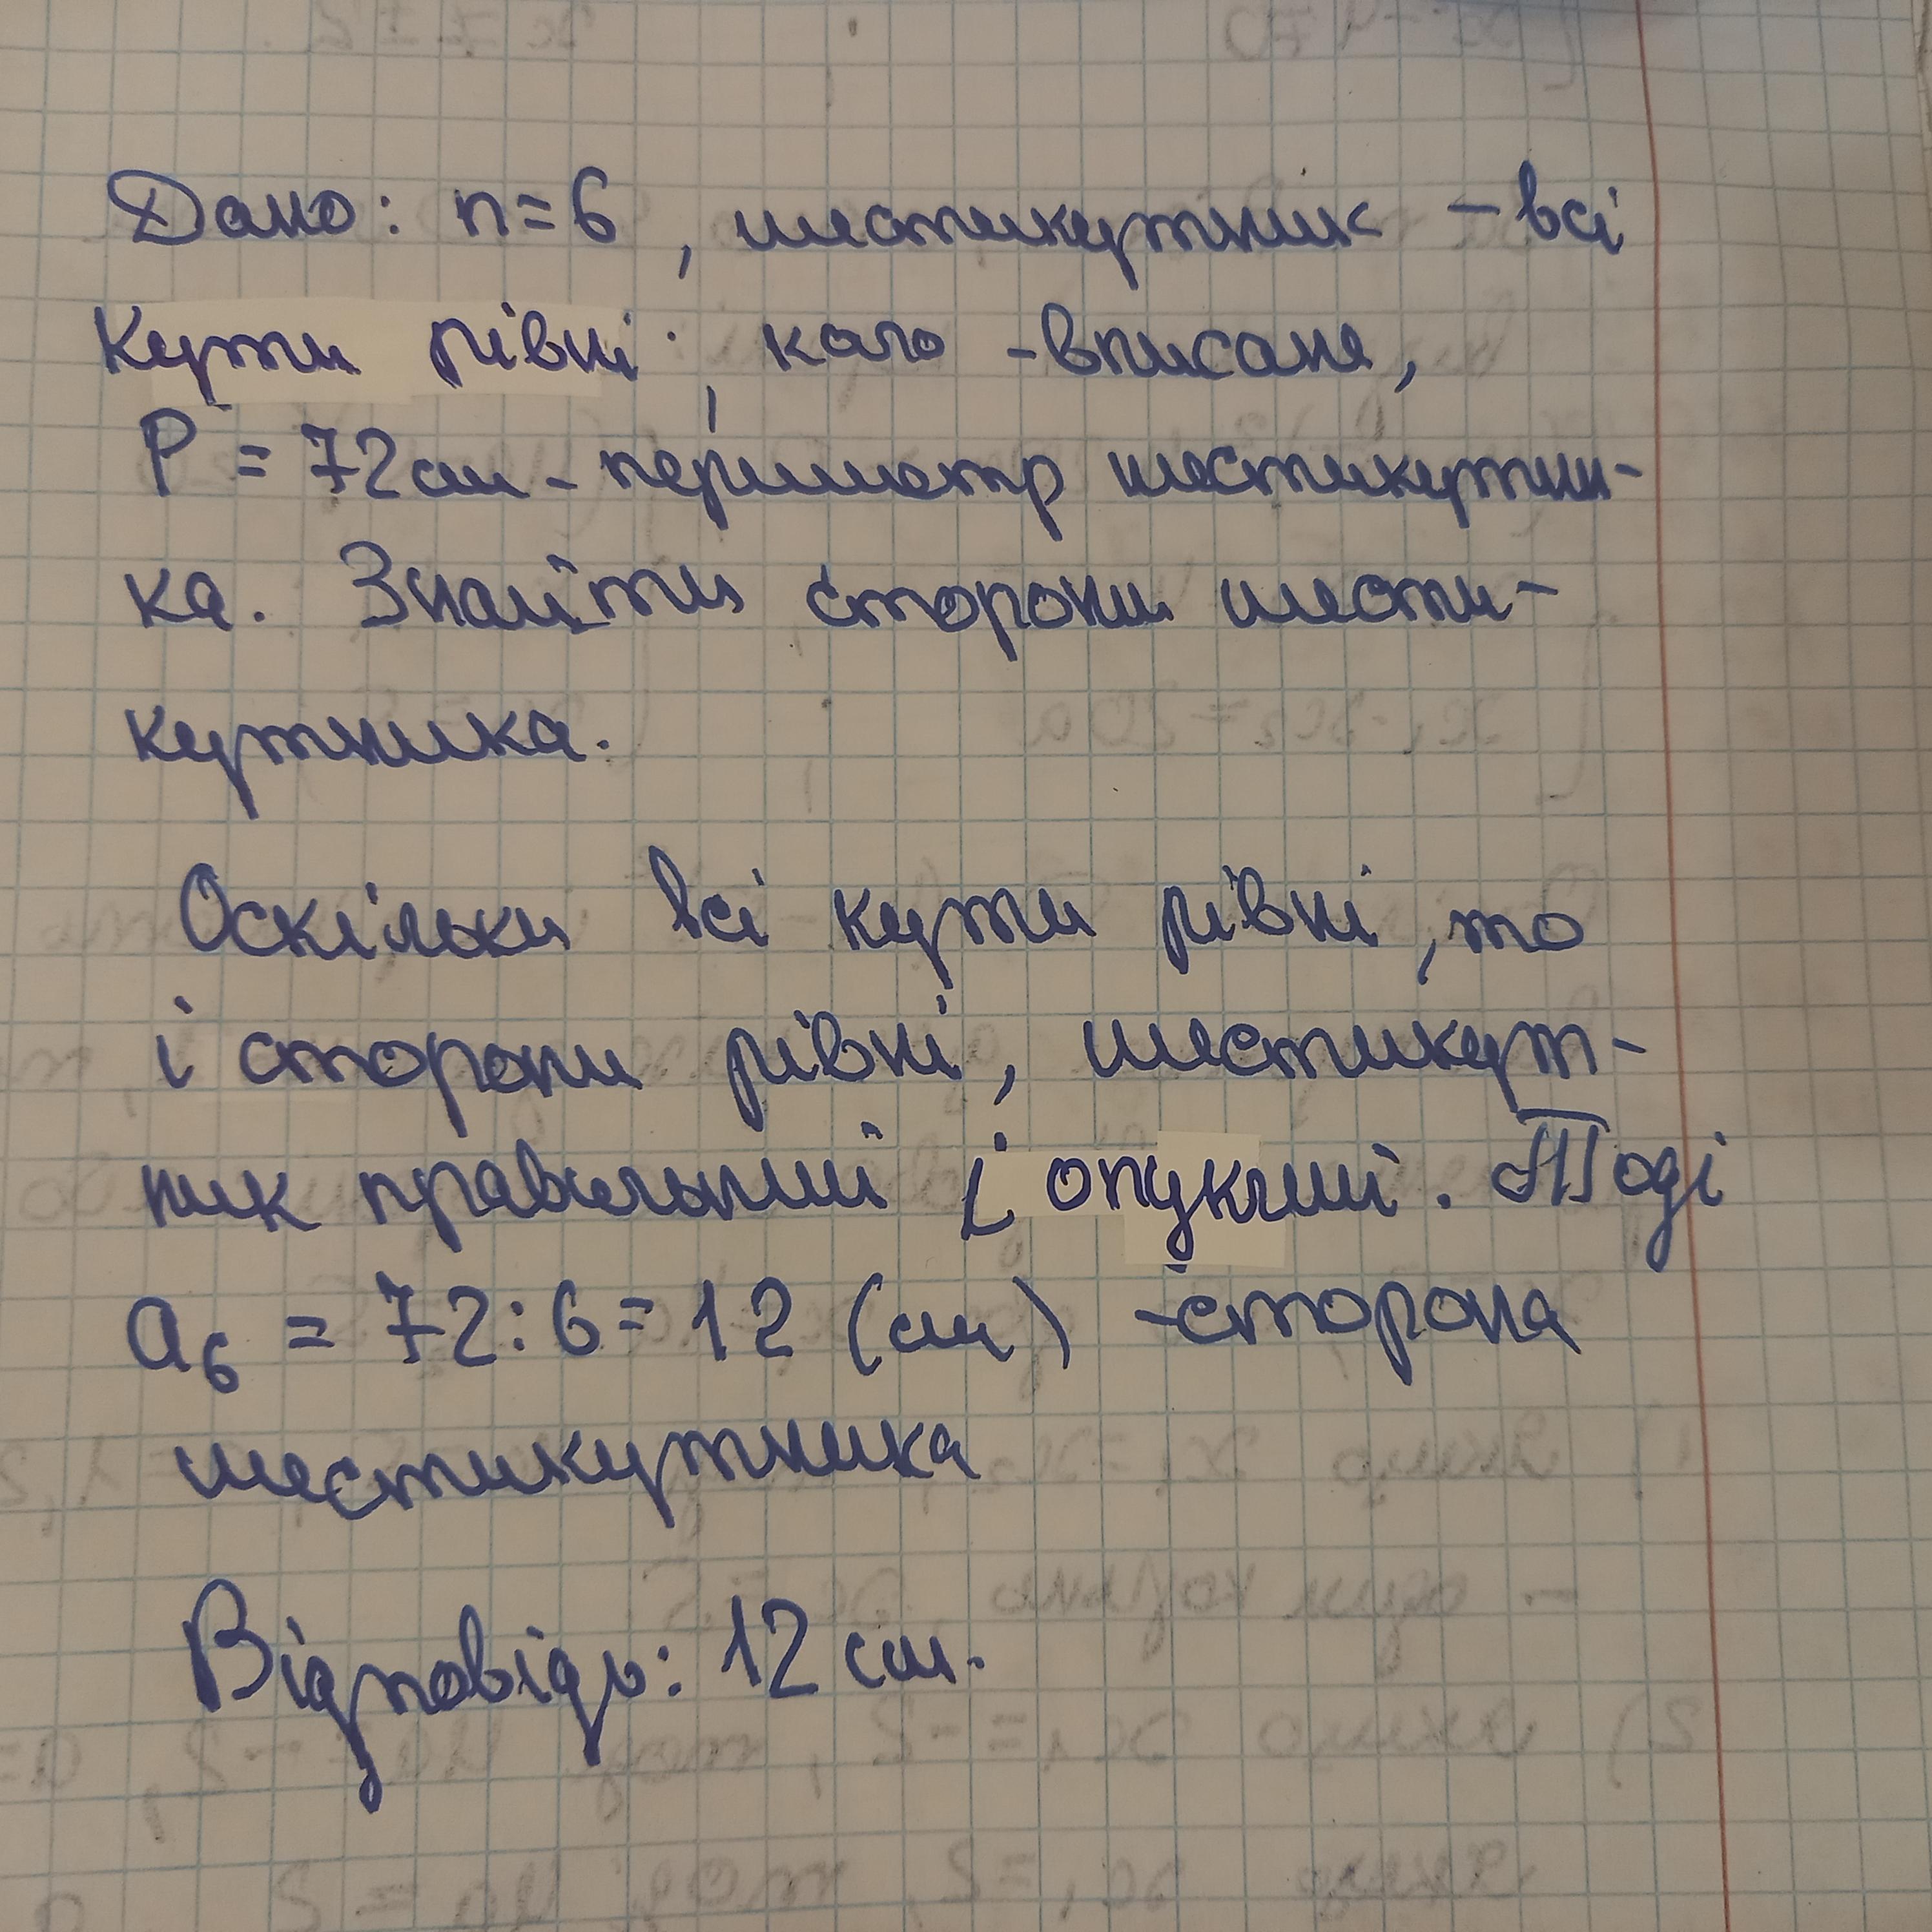 Дано: n=6, шестикутник - всі
Кути рівні; коло - вписане,
P = 72 см - периметр шестикутни-
ка. Знайти сторони шести-
кутника.
Оскільки всі кути рівні, то
і сторони рівні, шестикут-
ник правильний і опуклий. Тоді
a₆ = 72:6 = 12 (см) - сторона
шестикутника
Відповідь: 12 см.